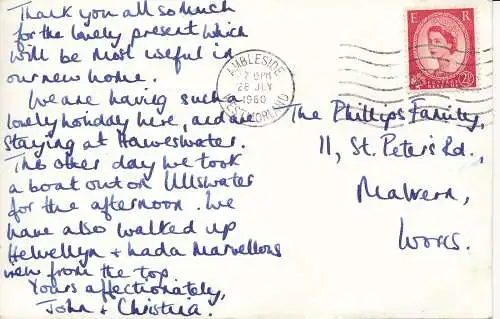 Thank you all so much
for the lovely present which
will be most useful in
our new home.
We are having such a
lovely holiday here, and are
staying at Haweswater.
The other day we took
a boat out on Ullswater
for the afternoon. We
have also walked up
Helvellyn + had a marvellous
view from the top.
Yours affectionately,
John + Christina.
AMBLESIDE
7 PM
28 JLY
1960
WESTMORLAND
E R
POSTAGE
REVENUE
2½D
The Phillips Family,
11, St. Peter's Rd.,
Malvern,
Worcs.